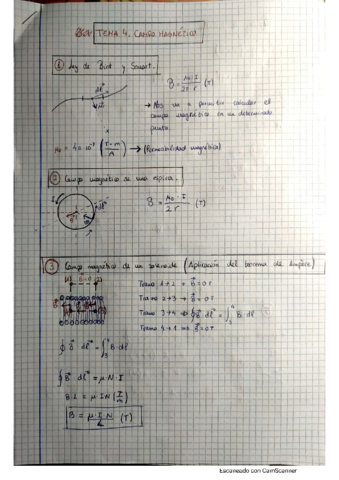 TEMA 4. CAMPO MAGNÉTICO
① Ley de Biot y Savart.
B = μ₀·I / 2π r (T)
→ Nos va a permitir calcular el
campo magnético en un determinado
punto.
μ₀ = 4π·10⁻⁷ (T·m / A) → (Permeabilidad magnética)
② Campo magnético de una espira.
B = μ₀·I / 2 r (T)
③ Campo magnético de un solenoide (Aplicación del teorema de Ampère)
Tramo 1→2 → B⃗ = 0 T
Tramo 2→3 → B⃗ = 0 T
Tramo 3→4 → ∮ B⃗ dl⃗ = ∫₃⁴ B dl
Tramo 4→1 → B⃗ = 0 T
∮ B⃗ dl⃗ = ∫₃⁴ B·dl
∮ B⃗ dl⃗ = μ·N·I
B·L = μ·I·N
B = μ·I·N / L (T)
Escaneado con CamScanner